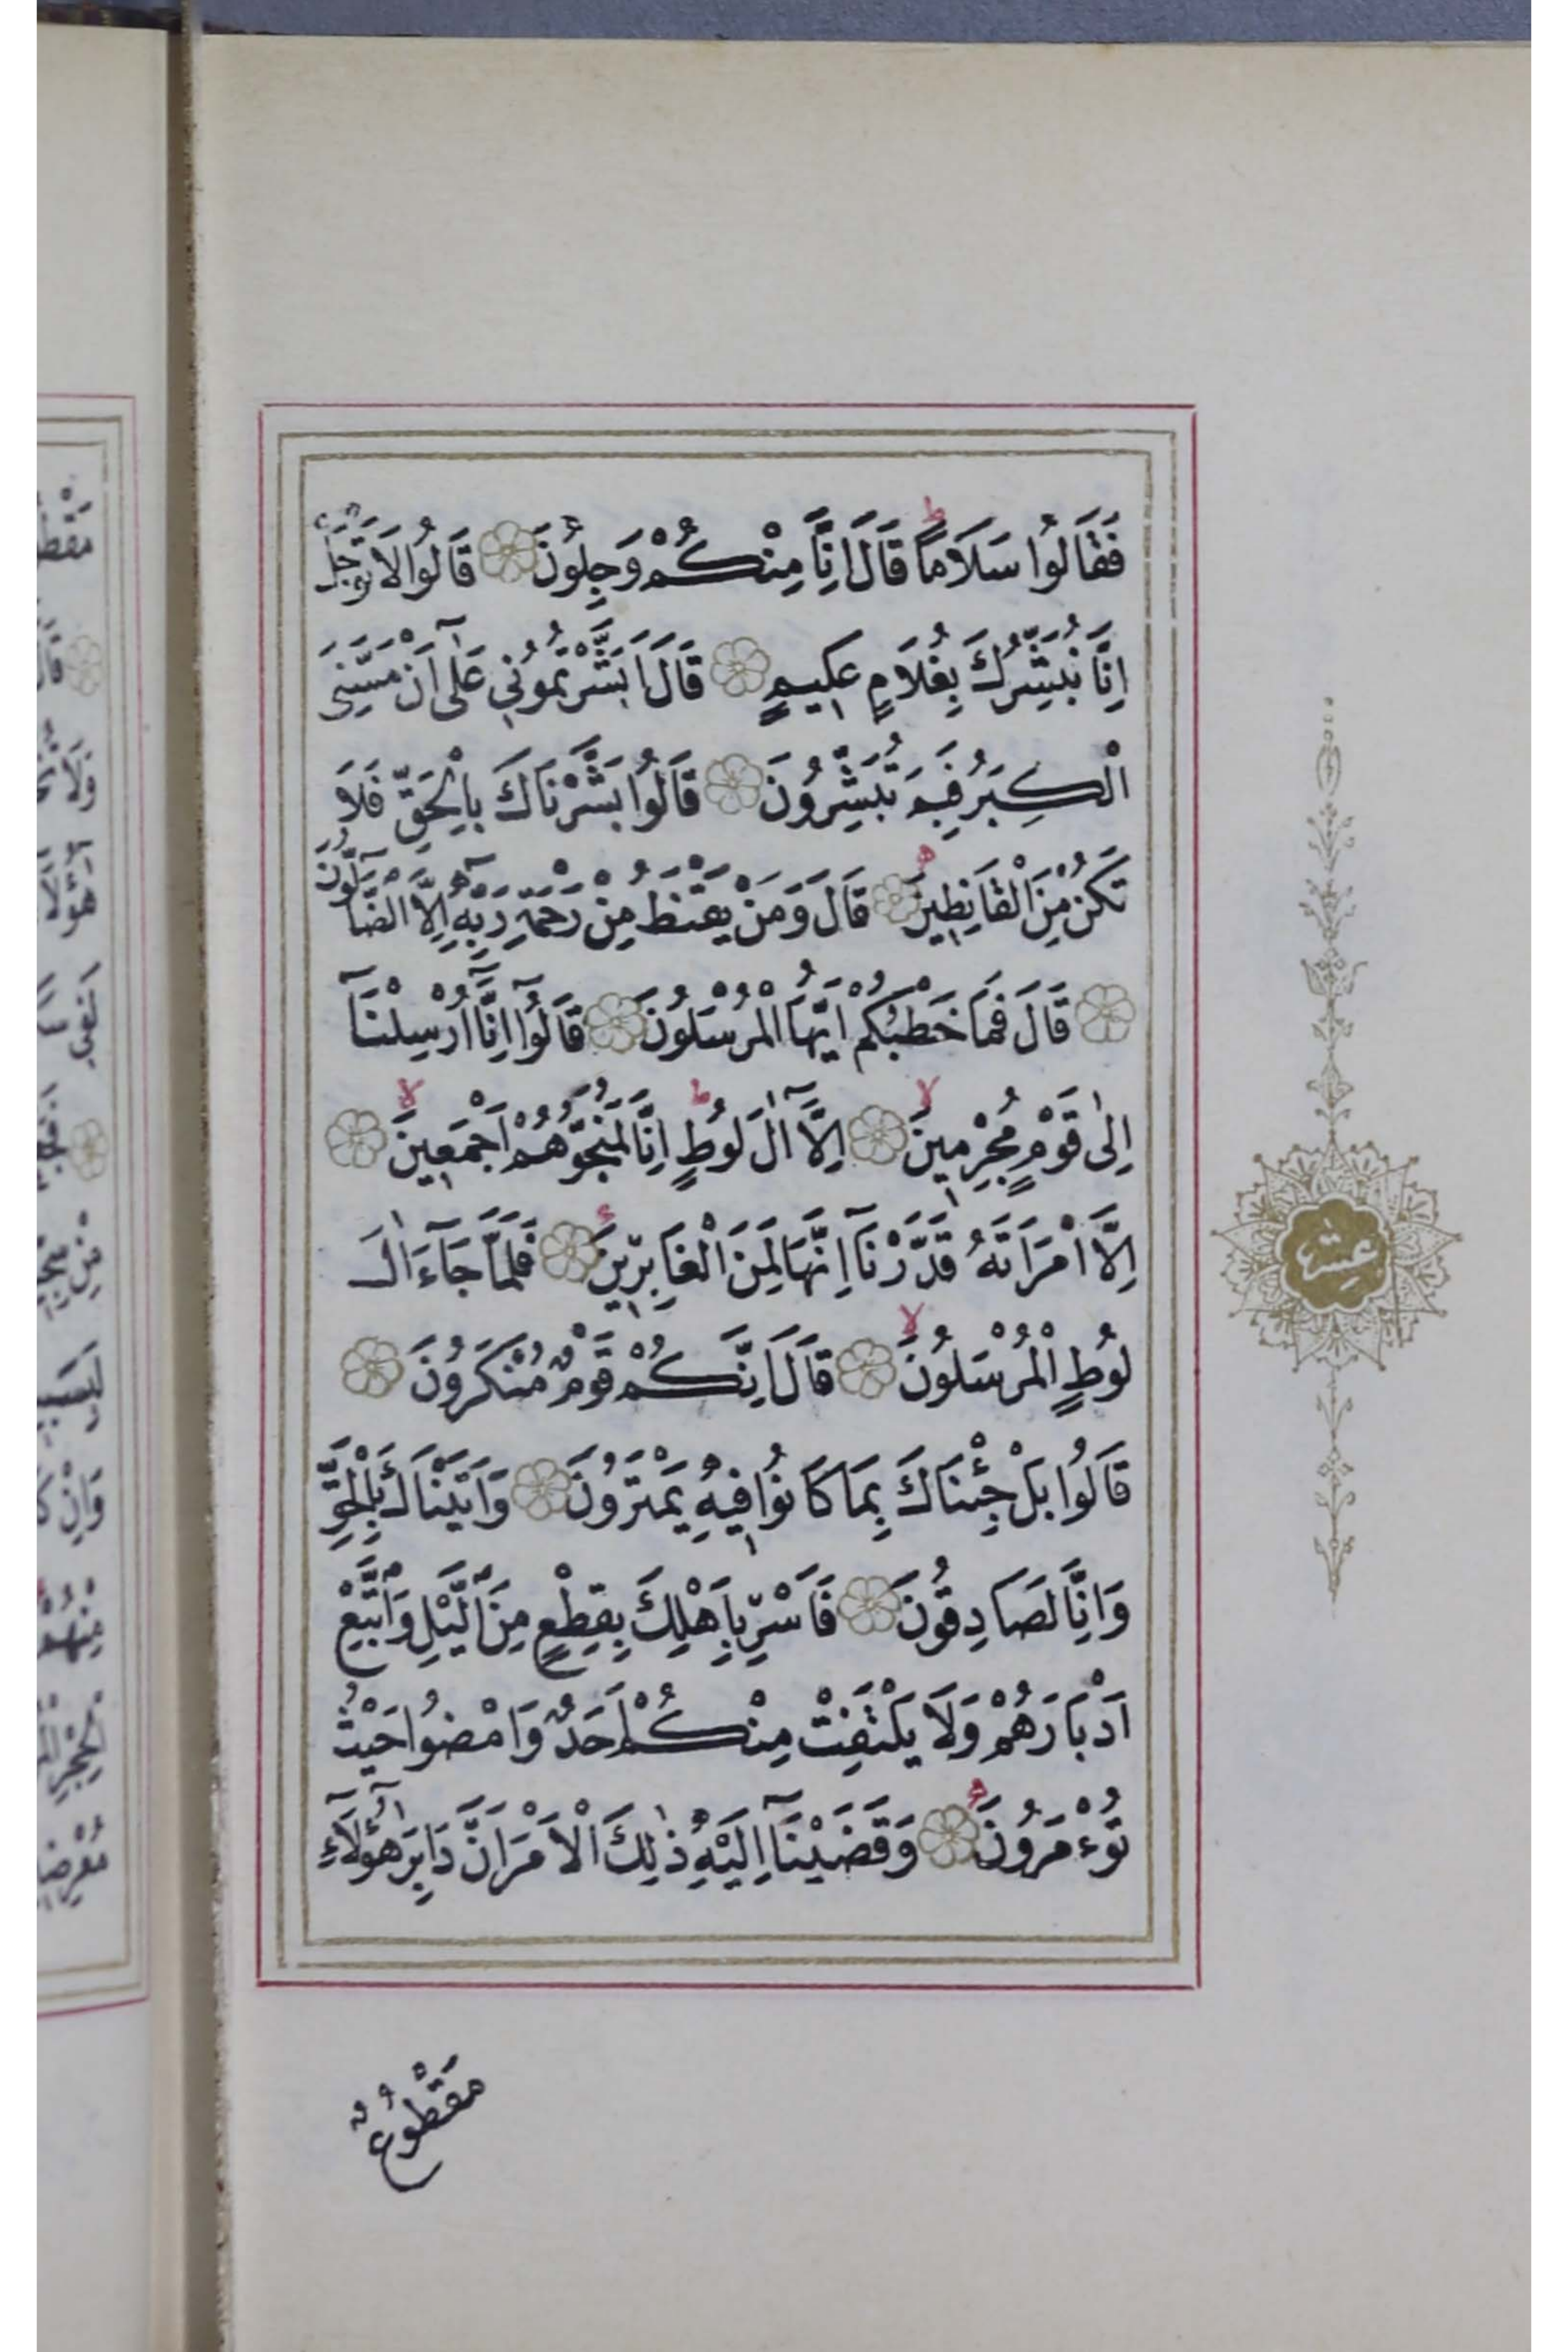 فَقَالُوا سَلَامًا ط قَالَ اِنَّا مِنْكُمْ وَجِلُونَ قَالُوا لَا تَوْجَلْ
اِنَّا نُبَشِّرُكَ بِغُلَامٍ عَلِيمٍ قَالَ اَبَشَّرْتُمُونِي عَلٰٓى اَنْ مَسَّنِيَ
الْكِبَرُ فَبِمَ تُبَشِّرُونَ قَالُوا بَشَّرْنَاكَ بِالْحَقِّ فَلَا
تَكُنْ مِنَ الْقَانِطِينَ ه قَالَ وَمَنْ يَقْنَطُ مِنْ رَحْمَةِ رَبِّهِٓ اِلَّا الضَّالُّونَ
قَالَ فَمَا خَطْبُكُمْ اَيُّهَا الْمُرْسَلُونَ قَالُٓوا اِنَّٓا اُرْسِلْنَٓا
اِلٰى قَوْمٍ مُجْرِمِينَ لا اِلَّٓا اٰلَ لُوطٍ ط اِنَّا لَمُنَجُّوهُمْ اَجْمَعِينَ لا
اِلَّا امْرَاَتَهُ قَدَّرْنَٓا اِنَّهَا لَمِنَ الْغَابِرِينَ ء فَلَمَّا جَٓاءَ اٰلَ
لُوطٍ الْمُرْسَلُونَ لا قَالَ اِنَّكُمْ قَوْمٌ مُنْكَرُونَ
قَالُوا بَلْ جِئْنَاكَ بِمَا كَانُوا فِيهِ يَمْتَرُونَ وَاَتَيْنَاكَ بِالْحَقِّ
وَاِنَّا لَصَادِقُونَ فَاَسْرِ بِاَهْلِكَ بِقِطْعٍ مِنَ الَّيْلِ وَاتَّبِعْ
اَدْبَارَهُمْ وَلَا يَلْتَفِتْ مِنْكُمْ اَحَدٌ وَامْضُوا حَيْثُ
تُؤْمَرُونَ وَقَضَيْنَٓا اِلَيْهِ ذٰلِكَ الْاَمْرَ اَنَّ دَابِرَ هٰٓؤُلَٓاءِ
مَقْطُوعٌ